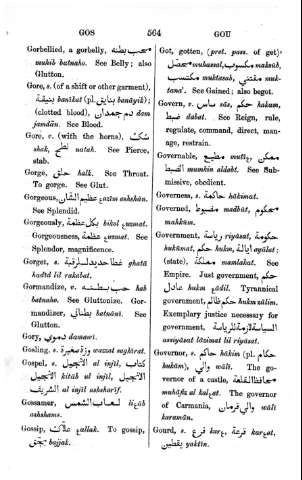 GOS 564 GOU
Gorbellied, a gorbelly, محب بطنه
muhib batnaho. See Belly; also
Glutton.
Gore, s. (of a shift or other garment),
بنيقة banikat (pl. بنايق banáyik);
(clotted blood), دم جمدان dam
jamdán. See Blood.
Gore, v. (with the horns), شك
shak, نطح natah. See Pierce,
stab.
Gorge, حلق halk. See Throat.
To gorge. See Glut.
Gorgeous, عظيم الشان azím ashshán.
See Splendid.
Gorgeously, بكل عظمة bikol
Gorgeousness, عظمة See
Splendor, magnificence.
Gorget, غطا حديد لسرقبة ghatá
hadíd lil rakabat.
Gormandize, v. حب بطنه hab
batnaho. See Gluttonize. Gor-
mandizer, بطني batnáni. See
Glutton.
Gory, دموي damawi.
Gosling, s. وزة صغيرة wazzat
Gospel, s. الانجيل al injíl, كتاب
الانجيل kitáb al injíl, الانجيل
الشريف al injíl ashsharíf.
Gossamer, لعاب الشمس
ashshams.
Gossip, علاك To gossip,
bajjak.
Got, gotten, (pret. pass. of get)
محصل muhassal, مكسوب maksúb,
مكتسب muktasab, مقتني muk-
tana'. See Gained; also begot.
Govern, v. ساس sás, حكم hakum,
ضبط dabat. See Reign, rule,
regulate, command, direct, man-
age, restrain.
Governable, مطيع ممكن
الضبط mumkin aldabt. See Sub-
missive, obedient.
Governess, s. حاكمة hákimat.
Governed, مضبوط madbút, محكوم
mahkúm.
Government, رياسة riyásat, حكومة
hukúmat, حكم hukm, ايالة ayálat;
(state), مملكة mamlakat. See
Empire. Just government, حكم
عادل hukm Tyrannical
government, حكم ظالم hukm zálim.
Exemplary justice necessary for
government, السياسة لازمة للرياسة
assiyásat lázimat lil riyásat.
Governor, s. حاكم hákim (pl. حكام
hukkám), والي wáli. The go-
vernor of a castle, محافظ القلعة
muháfiz al The governor
of Carmania, والي قرمان wáli
karamán.
Gourd, s. قرع قرعة
يقطين yaktín.